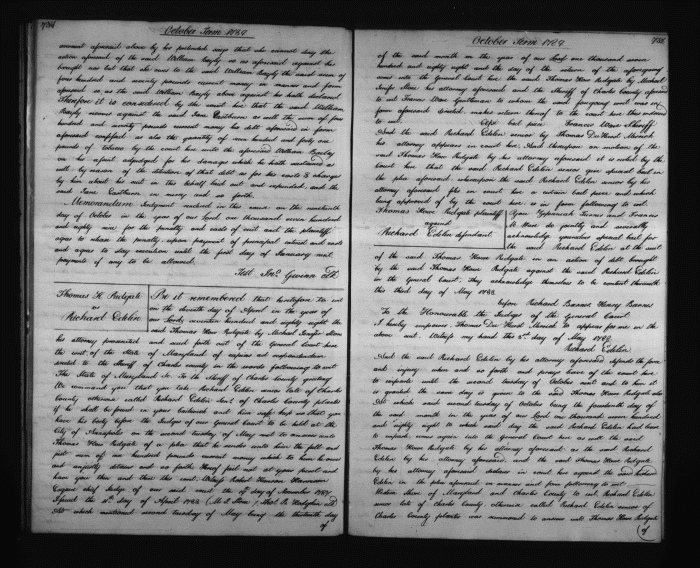 734
October Term 1789
account aforesaid above by his pretended says that she cannot deny the
action aforesaid of the said William Bayly so as aforesaid against his
brought nor but that she owes to the said William Bayly the said sum of
four hundred and ninety pounds current money in manner and form
aforesaid as the said William Bayly above against her hath declared
Therefore it is considered by the court here that the said William
Bayly recover against the said Jane Easthorn as well the sum of four
hundred and ninety pounds current money his debt aforesaid in form
aforesaid confessed as also the quantity of nine hundred and forty one
pounds of tobacco by the court here unto the aforesaid William Bayly
on his assent adjudged for his damages which he hath sustained as
well by reason of the detention of that debt as for his costs & charges
by him about his suit in this behalf laid out and expended and the
said Jane Easthorn in mercy and so forth.
Memorandum Judgment rendered in this cause on the nineteenth
day of October in the year of our Lord one thousand seven hundred
and eighty nine for the penalty and costs of suit and the plaintiff
agrees to release the penalty upon payment of principal interest and costs
and agrees to stay execution until the first day of January next
payments if any to be allowed.
Test Jno. Gwinn Clk
Thomas H. Ridgate
vs
Richard Edelin
Be it remembered that heretofore to wit
on the seventh day of April in the year of
our Lord seventeen hundred and eighty eight the
said Thomas How Ridgate by Michael Jenifer Stone
his attorney prosecuted and sued forth out of the General Court here
the writ of the State of Maryland of capias ad respondendum
directed to the Sheriff of Charles county in the words following to wit
The State of Maryland to the Sheriff of Charles County greeting
We command you that you take Richard Edelin senior late of Charles
County otherwise called Richard Edelin senr of Charles County planter
if he shall be found in your bailiwick and him safe keep so that you
have his body before the Judges of our General Court to be held at the
City of Annapolis the second tuesday of May next to answer unto
Thomas How Ridgate of a plea that he render unto him the full and
just sum of six hundred pounds current money which to him he owes
and unjustly detains and so forth Hereof fail not at your peril and
have you then and there this writ. Witness Robert Hanson Harrison
Esquire chief Judge of our said court the 29 day of November 1787
Issued the 7th day of April 1788
At which mentioned second tuesday of May being the thirteenth day
of
October Term 1789
735
of the said month in the year of our Lord one thousand seven
hundred and eighty eight and the day of the return of the aforegoing
writ into the General Court here the said Thomas How Ridgate by Michael
Jenifer Stone his attorney aforesaid and the Sheriff of Charles County aforesaid
to wit Francis Ware Gentleman to whom the said foregoing writ was in
form aforesaid directed makes return thereof to the court here thus endorsed
to wit
Cepi bail piece Francis Ware Sheriff
And the said Richard Edelin senior by Thomas Du Hunt Minick
his attorney appears in court here. And thereupon on motion of the
said Thomas How Ridgate by his attorney aforesaid it is ruled by the
Court here that the said Richard Edelin senior give special bail in
the plea aforesaid whereupon the said Richard Edelin senior by his
attorney aforesaid files in court here a certain bail piece and which
being approved of by the court here is in form following to wit
Thomas How Ridgate plaintiff
against
Richard Edelin defendant
You Zephaniah Turner and Francis
H. Ware do jointly and severally
acknowledge yourselves special bail for
the said Richard Edelin at the suit
of the said Thomas How Ridgate in an action of debt brought
by the said Thomas How Ridgate against the said Richard Edelin
in the General Court. They acknowledge themselves to be content therewith
this third day of May 1788
before Richard Barnes Henry Barnes
To the Honourable the Judges of the General Court
I hereby empower Thomas Du Hunt Minick to appear for me in the
above suit. Witness my hand this 3rd day of May 1788
Richard Edelin
And the said Richard Edelin by his attorney aforesaid defends the force
and injury when and so forth and prays leave of the court here
to imparle until the second tuesday of October next and to him it
is granted the same day is given to the said Thomas How Ridgate also
At which said second tuesday of October being the fourteenth day of
the said month in the year of our Lord one thousand seven hundred
and eighty eight to which said day the said Richard Edelin had leave
to imparle comes again into the General Court here as well the said
Thomas How Ridgate by his attorney aforesaid as the said Richard
Edelin by his attorney aforesaid, and the said Thomas How Ridgate
by his attorney aforesaid declares in court here against the said Richard
Edelin in the plea aforesaid in manner and form following to wit
Western Shore of Maryland and Charles County to wit. Richard Edelin
senior late of Charles County otherwise called Richard Edelin senior of
Charles County planter was summoned to answer unto Thomas How Ridgate
of